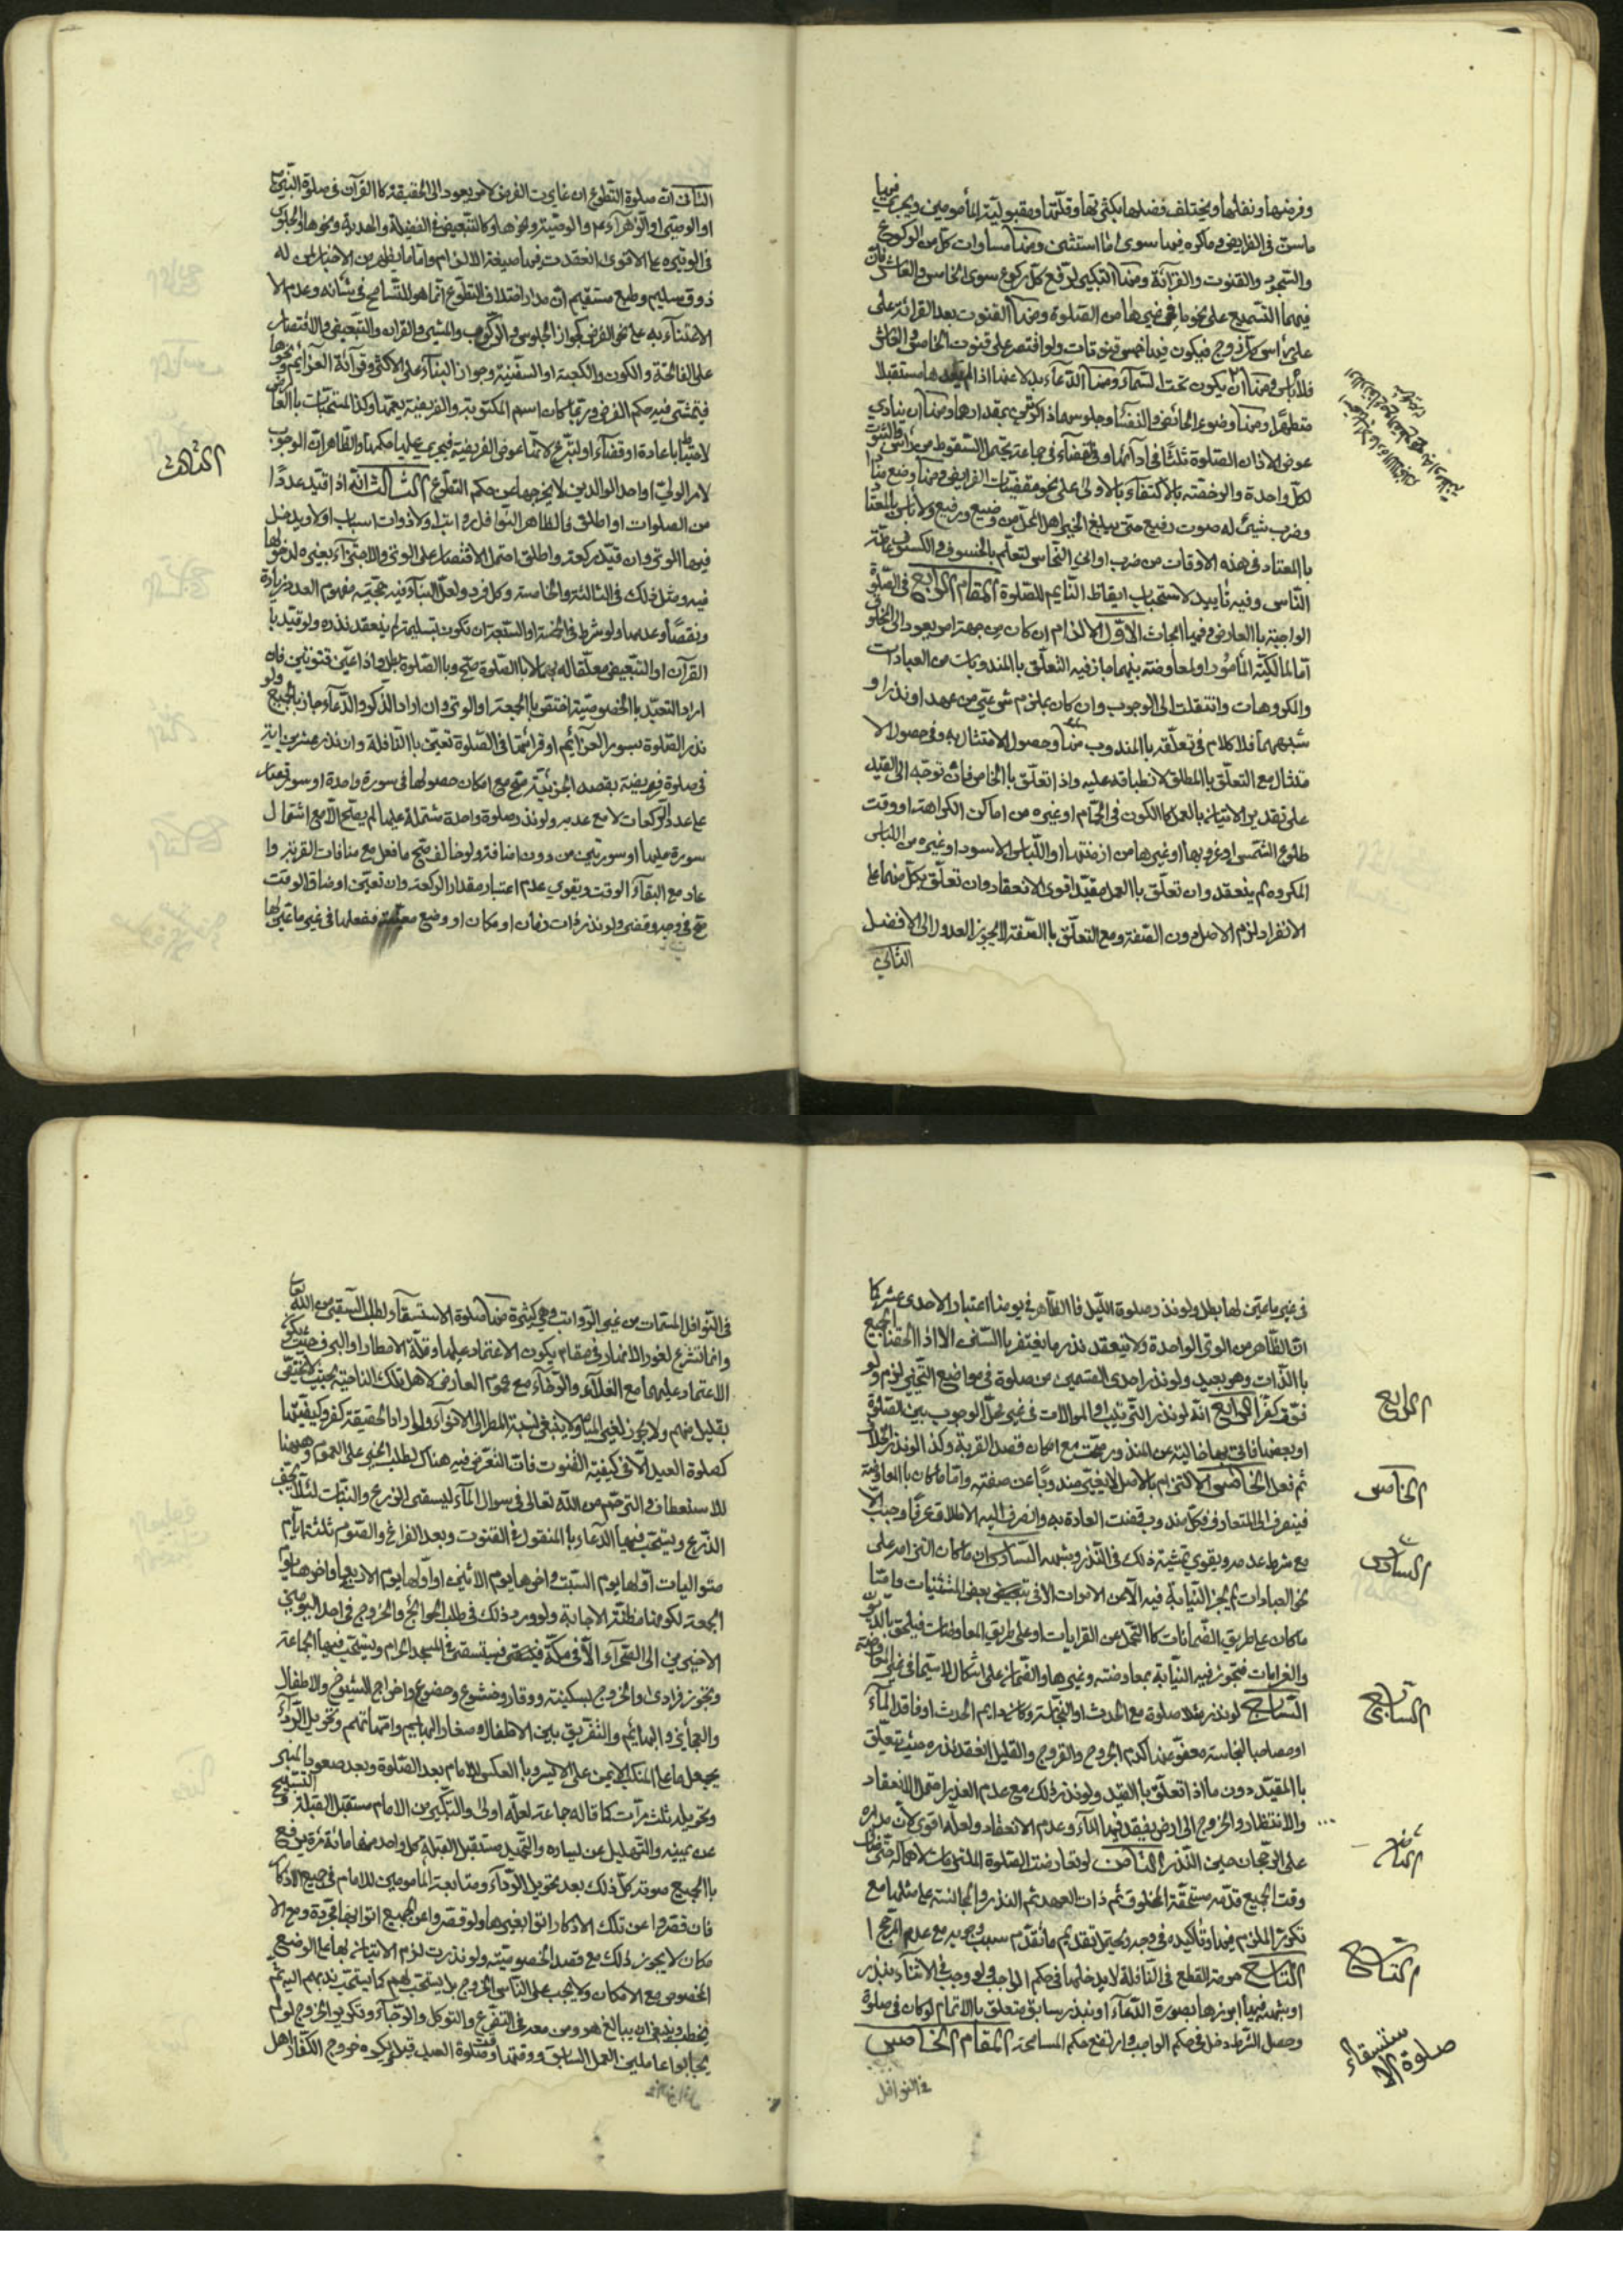 وفرضها ونفلها ويختلف فضلها بكثرتها وقلّتها ومقبولية المأمومين ويجري فيها
ما سبق في الفرايض وما كره فيها سوى ما استثنى ومنها مساوات كلّ من الركوع
والسّجود والقنوت والقرائة ومنها التكبير لرفع كلّ ركوع سوى الخامس والعاشر فان
فيهما التسميع على نحو ما في غيرها من الصّلوة ومنها القنوت بعد القرائة على
على رأس كلّ زوج فيكون فيها خمس قنوتات ولو اقتصر على قنوت الخامس والعاشر
فلا بأس ومنها ان يكون تحت السّماء ومنها الدّعاء بدلا عنها اذا لم مستقبلا
متطهّرا ومنها وضوء الحائض والنّفساء وجلوسها ذاكرتين بمقدارها ومنها ان ينادي
عوض الاذان الصّلوة ثلثا في ادائها وفي قضاء في جماعة يحتمل السّقوط من رأس والثبوت
لكلّ واحدة والرخصة بالاكتفاء بالاولى على نحو مقضيات الفرايض ومنها وضع منار
وضرب شيئ له صوت رفيع حتّى يبلغ الخبر اهل المحلّ من وضيع ورفيع ولا بأس بالمعتاد
بالمعتاد في هذه الاوقات من ضرب اواني النّحاس لتعلم بالخسوف والكسوف عامّة
النّاس وفيه تأييد لاستحباب ايقاظ النّايم للصّلوة المقام الرّابع في الصّلوة
الواجبة بالعارض وفيها ابحاث الاوّل الالزام ان كان من جهة امر يعود الى الخلق
امّا لمالكيّة المأمور او لمعاوضة بينهما جاز فيه التعلّق بالمندوبات من العبادات
والمكروهات وانتقلت الى الوجوب وان كان بملزم شرعيّ من عهد او نذر او
شبههما فلا كلام في تعلّقه بالمندوب منها وحصول الامتثال به وفي حصول الا
متثال مع التعلّق بالمطلق لانطباقه عليه واذا تعلّق بالخاصّ فان توجّه الى القيد
على تقدير الاتيان بالعمل كالكون في الحمّام او غيره من اماكن الكراهة او وقت
طلوع الشّمس او غروبها او غيرها من ازمنتها او اللّباس الاسود او غيره من اللّباس
المكروه لم ينعقد وان تعلّق بالعمل مقيّدا قوى الانعقاد وان تعلّق بكلّ منهما على
الانفراد لزم الاصل دون الصّفة ومع التعلّق بالصّفة لا يجوز العدول الى الافضل
الثّاني
الثّاني انّ صلوة التّطوع ان غايرت الفرض لامر يعود الى الحقيقة كالقرآن في صلوة النّبيّ
او الوصيّ او الزّهراء ع والوصيّة ونحوها وكالتّبعيض في الفضيلة والهدية ونحوها والجلوس
في الوتيرة على الاقوى انعقدت فيها صيغة الالزام وامّا ما يظهر من الاخبار لمن له
ذوق سليم وطبع مستقيم انّ مدار اختلاف التّطوع انّما هو للتّسامح في شأنه وعدم الا
الاعتناء به على نحو الفرض كجواز الجلوس والرّكوب والمشي والقران والتّبعيض والاقتصار
على الفاتحة والكون والكعبة او السّفينة وجواز البناء على الاكثر وقرائة العزائم ونحوها
فيتمشّى فيه حكم الفرض وربّما كان اسم المكتوبة والفريضة يعمّها وكذا المستحبّات بالعارض
لاحتياط باعادة او قضاء او لتبرّع لانّها عوض الفريضة فيجري عليها حكمها والظّاهر انّ الوجوب
لامر الوليّ او احد الوالدين لا يخرجها من حكم التطوّع الثّالث انّه اذا قيّد عددًا
الثّالث
من الصلوات او اطلق فالظاهر النّوافل ابتداء ولا ذوات اسباب او لا ويدخل
فيها الوتر وان قيّد بركعة واطلق احتمل الاقتصار على الوتر والاجتزاء بغيره لدخولها
فيه ومثل ذلك في الثالثة والخامسة وكلّ فرد ولعلّ البناء فيه حجيّة مفهوم العدد زيادة
ونقصًا وعدمه ولو شرط في الخمسة او السّتة ان تكون بتسليمة لم ينعقد نذره ولو قيّد با
القرآن او التّبعيض معلّقا له بهما لا بالصّلوة صحّ وبالصّلوة بطل واذا عيّن قنوتين فان
اراد التعبّد بالخصوصيّة اختصّ بالجمعة او الوتر وان اراد الذكر والدّعاء جاز بالجميع ولو
نذر الصّلوة بسور العزائم او قرائتها في الصّلوة تعيّن بالنّافلة وان نذر عشرين اية
في صلوة فريضة بقصد الجزئيّة صحّ مع امكان حصولها في سورة واحدة او سور قصار
على عدد الرّكعات لا مع عدمه ولو نذر صلوة واحدة مشتملة عليها لم يصحّ الّا مع اشتمال
سورة عليها او سورتين من دون اضافة ولو خالف صحّ ما فعل مع منافات القربة وا
عاد مع البقاء الوقت ويقوى عدم اعتبار مقدار الركعة وان تعيّن او ضاق الوقت
صحّ في وجه وقضى ولو نذر ذات زمان او مكان او وضع معيّنة ففعلها في غير ما عيّن لها
في غير ما عيّن لها بطل ولو نذر صلوة اللّيل فالظّاهر في يومنا اعتبار الاحدى عشر كما
انّ الظّاهر من الوتر الواحدة ولا ينعقد نذر ما يفتقر بالسّنن الا اذا الحقنا الجميع
بالذّات وهو بعيد ولو نذر احدى القسمين من صلوة في مواضع التّخيير لزم ولو
فرّق كفّر الرّابع انّه لو نذر التّرتيب او الموالات في غير محلّ الوجوب بين الصّلوة
الرّابع
او بعضها فاتى بها خالية عن المنذور صحّت مع امكان قصد القربة وكذا لو نذر الخلاف
ثمّ فعل الخامس الالتزام بالاصل لا يغيّر مندوبًا عن صفته وامّا ما كان بالمعاوضة
الخامس
فينصرف الى المتعارف فكلّ مندوب قضت العادة به وانصرف اليه الاطلاق عرفًا وجب الّا
مع شرط عدمه ويقوى تمشية ذلك في النّذر وشبهه السّادس ان ما كان التزامه على
السّادس
نحو العبادات لم يجز النّيابة فيه الّا عن الاموات الا في بعض المستثنيات وامّا
ما كان على طريق الضّمانات كالتّحمل عن القرابات او على طريق المعاوضات فيلحق بالدّيون
والغرامات فيجوز فيه النّيابة بمعاوضة وغيرها والضّمان على اشكال لا سيّما في غير المعاوضة
السّابع لو نذر مثلا صلوة مع الحدث او النّجاسة وكان دايم الحدث او فاقد الماء
السّابع
او مصاحبا لنجاسة معفوّ عنها كدم الجروح والقروح والقليل انعقد نذره حيث تعلّق
بالمقيّد دون ما اذا تعلّق بالقيد ولو نذر ذلك مع عدم العذر احتمل الانعقاد
والانتظار والخروج الى ارض يفقد فيها الماء وعدم الانعقاد ولعلّه اقوى لانّ مداره
على الرّجحان حين النّذر الثّامن لو تعارضت الصّلوة الملتزمات لاهماله حتّى ضاق
الثّامن
وقت الجميع قدّم مستحقّة المخلوق ثم ذات العهد ثم النذر والمجانسة على مثلها مع
تكرّر الملزم فيها وتأكيده في وجه ويحتمل تقديم ما تقدّم سبب وجوبه مع عدم المرجّح
التّاسع حرمة القطع في النّافلة لا يدخلها في حكم الواجب ولو وجب في الاثناء بنذر
التّاسع
او شبهه فيها ابرزها بصورة الدّعاء او بنذر سابق متعلق بالاتمام لو كان في صلوة
وحصل الشّرط دخل في حكم الواجب وارتفع حكم المسامحة المقام الخامس
صلوة الاستسقاء
في النوافل
في النّوافل المسمّات من غير الرّواتب وهي كثيرة منها صلوة الاستسقاء ولطلب السّقي من الله تعالى
وانما تشرع لغور الانهار في مقام يكون الاعتماد عليها وقلّة الامطار او البرف حيث يكون
الاعتماد عليهما مع الغلاء والرّخاء مع عموم العارض لاهل تلك النّاحية بحيث لا يختصّ
بقليل منهم ولا يجوز لغير المياه ولا ينبغي نسبة المطر الى الانواء ولو اراد الحقيقة كفر وكيفيّتها
كصلوة العيد الّا في كيفيّة القنوت فانّ التعرّض فيه هناك لطلب الخير على العموم وهيهنا
للاستعطاف والترحّم من الله تعالى في سؤال الماء ليسقى الزرع والنّبات لئلا يجفّ
الزّرع ويستحبّ فيها الدّعاء بالمنقول في القنوت وبعد الفراغ والصّوم ثلثة ايّام
متواليات اوّلها يوم السّبت واخرها يوم الاثنين او اوّلها يوم الاربعاء واخرها يوم
الجمعة لكونها مظنّة الاجابة ولورود ذلك في طلب الحوائج والخروج في احد اليومين
الاخيرين الى الصّحراء الّا في مكّة فيستسقى في المسجد الحرام ويستحبّ فيها الجماعة
وتجوز فرادى والخروج بسكينة ووقار وخشوع وخضوع واخراج الشّيوخ والاطفال
والعجائز والبهائم والتّفريق بين الاطفال وصغار البهايم وامّهاتهم وتحويل الرّداء
يجعل ما على المنكب الايمن على الايسر وبالعكس للامام بعد الصّلوة وبعد صعود المنبر
وتحويله ثلث مرّات كما قاله جماعة لعلّه اولى والتكبير من الامام مستقبل القبلة والتسبيح
عن يمينه والتّهليل عن يساره والتّحميد مستقبل القبلة كلّ واحد منها مائة مرّة يرفع
بالجميع صوته كلّ ذلك بعد تحويل الرّداء ومتابعة المأمومين للامام في جميع الاذكار
فان قصّروا عن تلك الاذكار اتوا بغيرها ولو قصّروا عن الجميع اتوا بها مجرّدة ومع الا
مكان لا يجوز ذلك مع قصد الخصوصيّة ولو نذرت لزم الاتيان بها على الوضع
المخصوص مع الامكان ولا يجب على النّاس الخروج بل يستحبّ لهم كما يستحبّ ندبهم اليه ثم
يخطب وينبغي ان يبالغ هو ومن معه في التضرّع والتوكل والرّجاء وتكرير الخروج لو لم
يجابوا عاملين العمل السّابق ووقتها وقت صلوة العيد قيل ويكره خروج الكفّار اهل